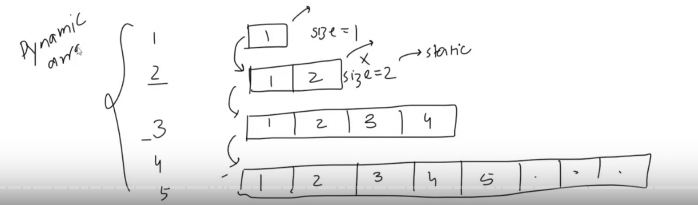 Dynamic
arr
1
2
3
4
5
1 size=1
1 2 size=2 x static
1 2 3 4
1 2 3 4 5 . . .